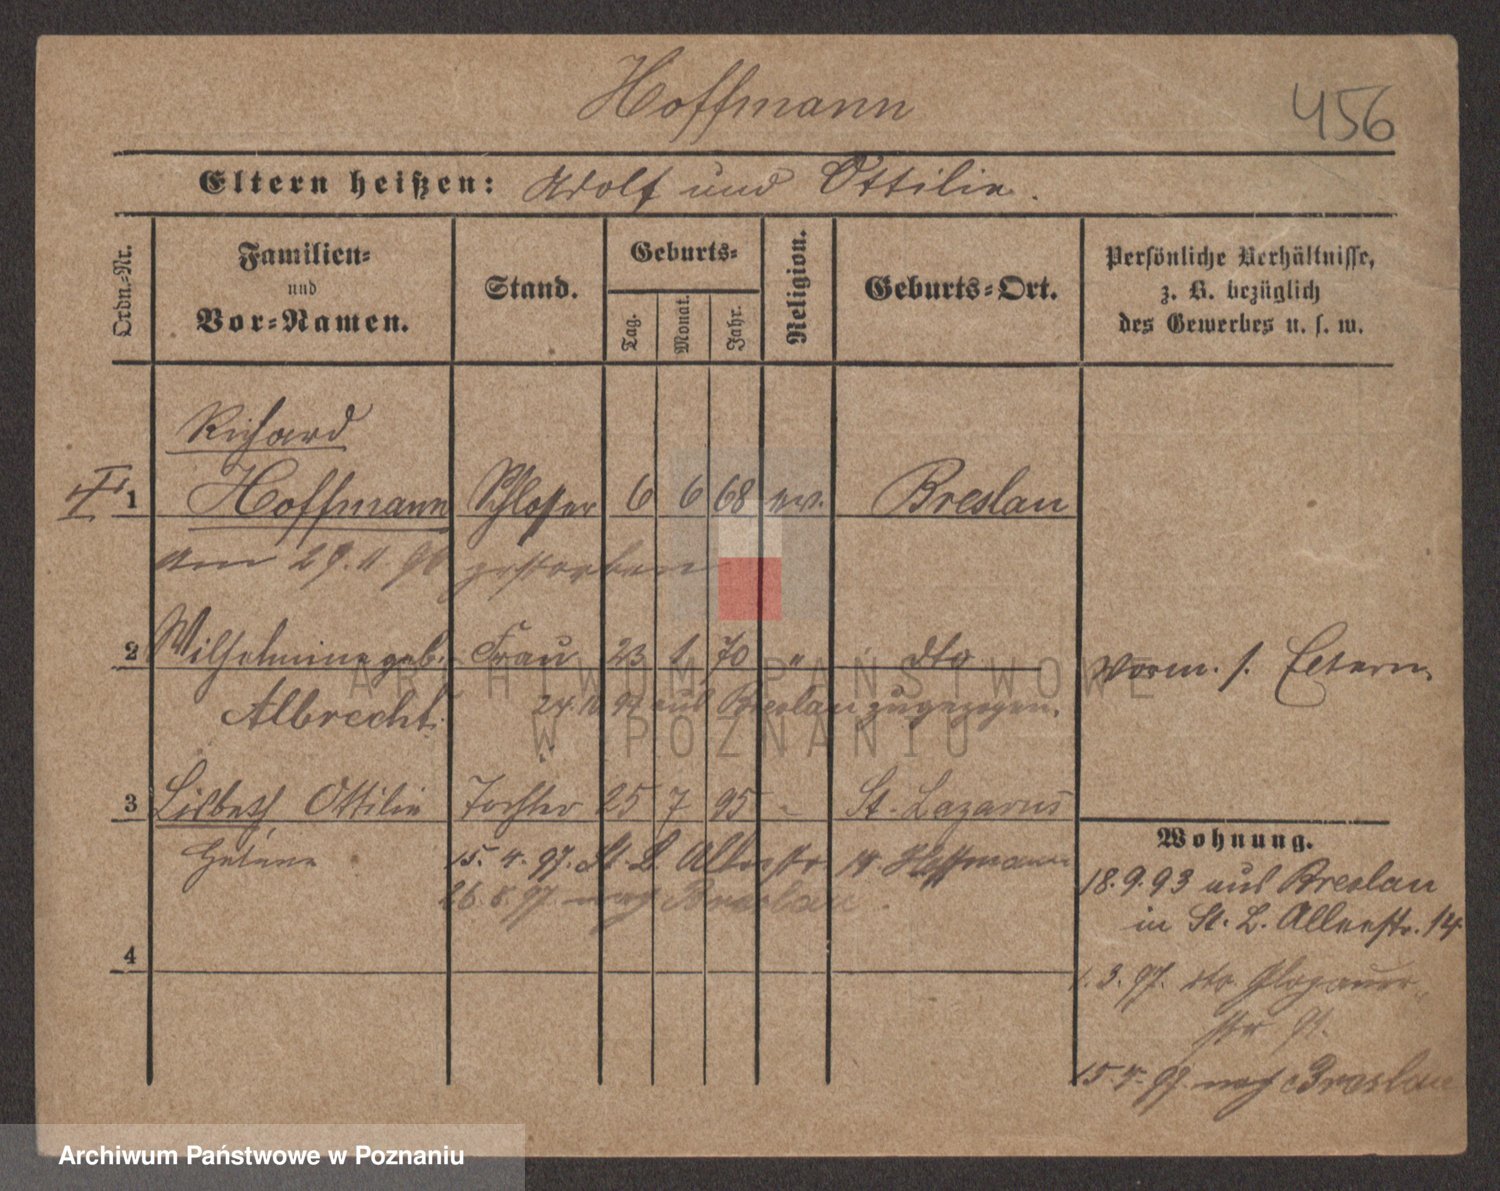 Hoffmann
456
Eltern heißen: Adolf und Ottilie.
Ordn.-Nr.
Familien- und Vor-Namen.
Stand.
Geburts-
Tag.
Monat.
Jahr.
Religion.
Geburts-Ort.
Persönliche Verhältnisse,
z. B. bezüglich
des Gewerbes u. s. w.
Richard
1 Hoffmann Schlosser 6 6 68 ev. Breslau
am 29. 11. 96 gestorben
2 Wilhelmine geb. Frau 23 1 70 " dto
vorm. s. Eltern.
Albrecht. 24. 10. 94 aus Breslau zugezogen.
3 Lisbeth Ottilie Tochter 25 7 95 " St. Lazarus
Helene 15. 4. 97. St. L. Alleestr. 14. Hoffmann
26. 8. 97. nach Breslau.
4
Wohnung.
18. 9. 93 aus Breslau
in St. L. Alleestr. 14
1. 3. 97. dto Glogauer-
str
15. 4. 97. nach Breslau
ARCHIWUM PAŃSTWOWE
W POZNANIU
Archiwum Państwowe w Poznaniu